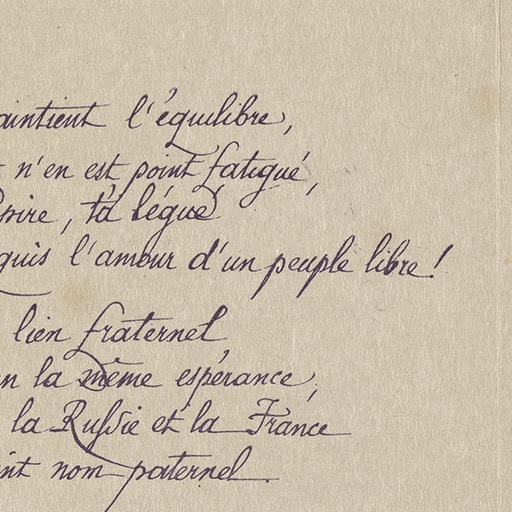 aintient l'équilibre,
n'en est point fatigué,
spire, t'a légué
quis l'amour d'un peuple libre!
lien fraternel,
n la même espérance,
la Russie et la France
int nom paternel.